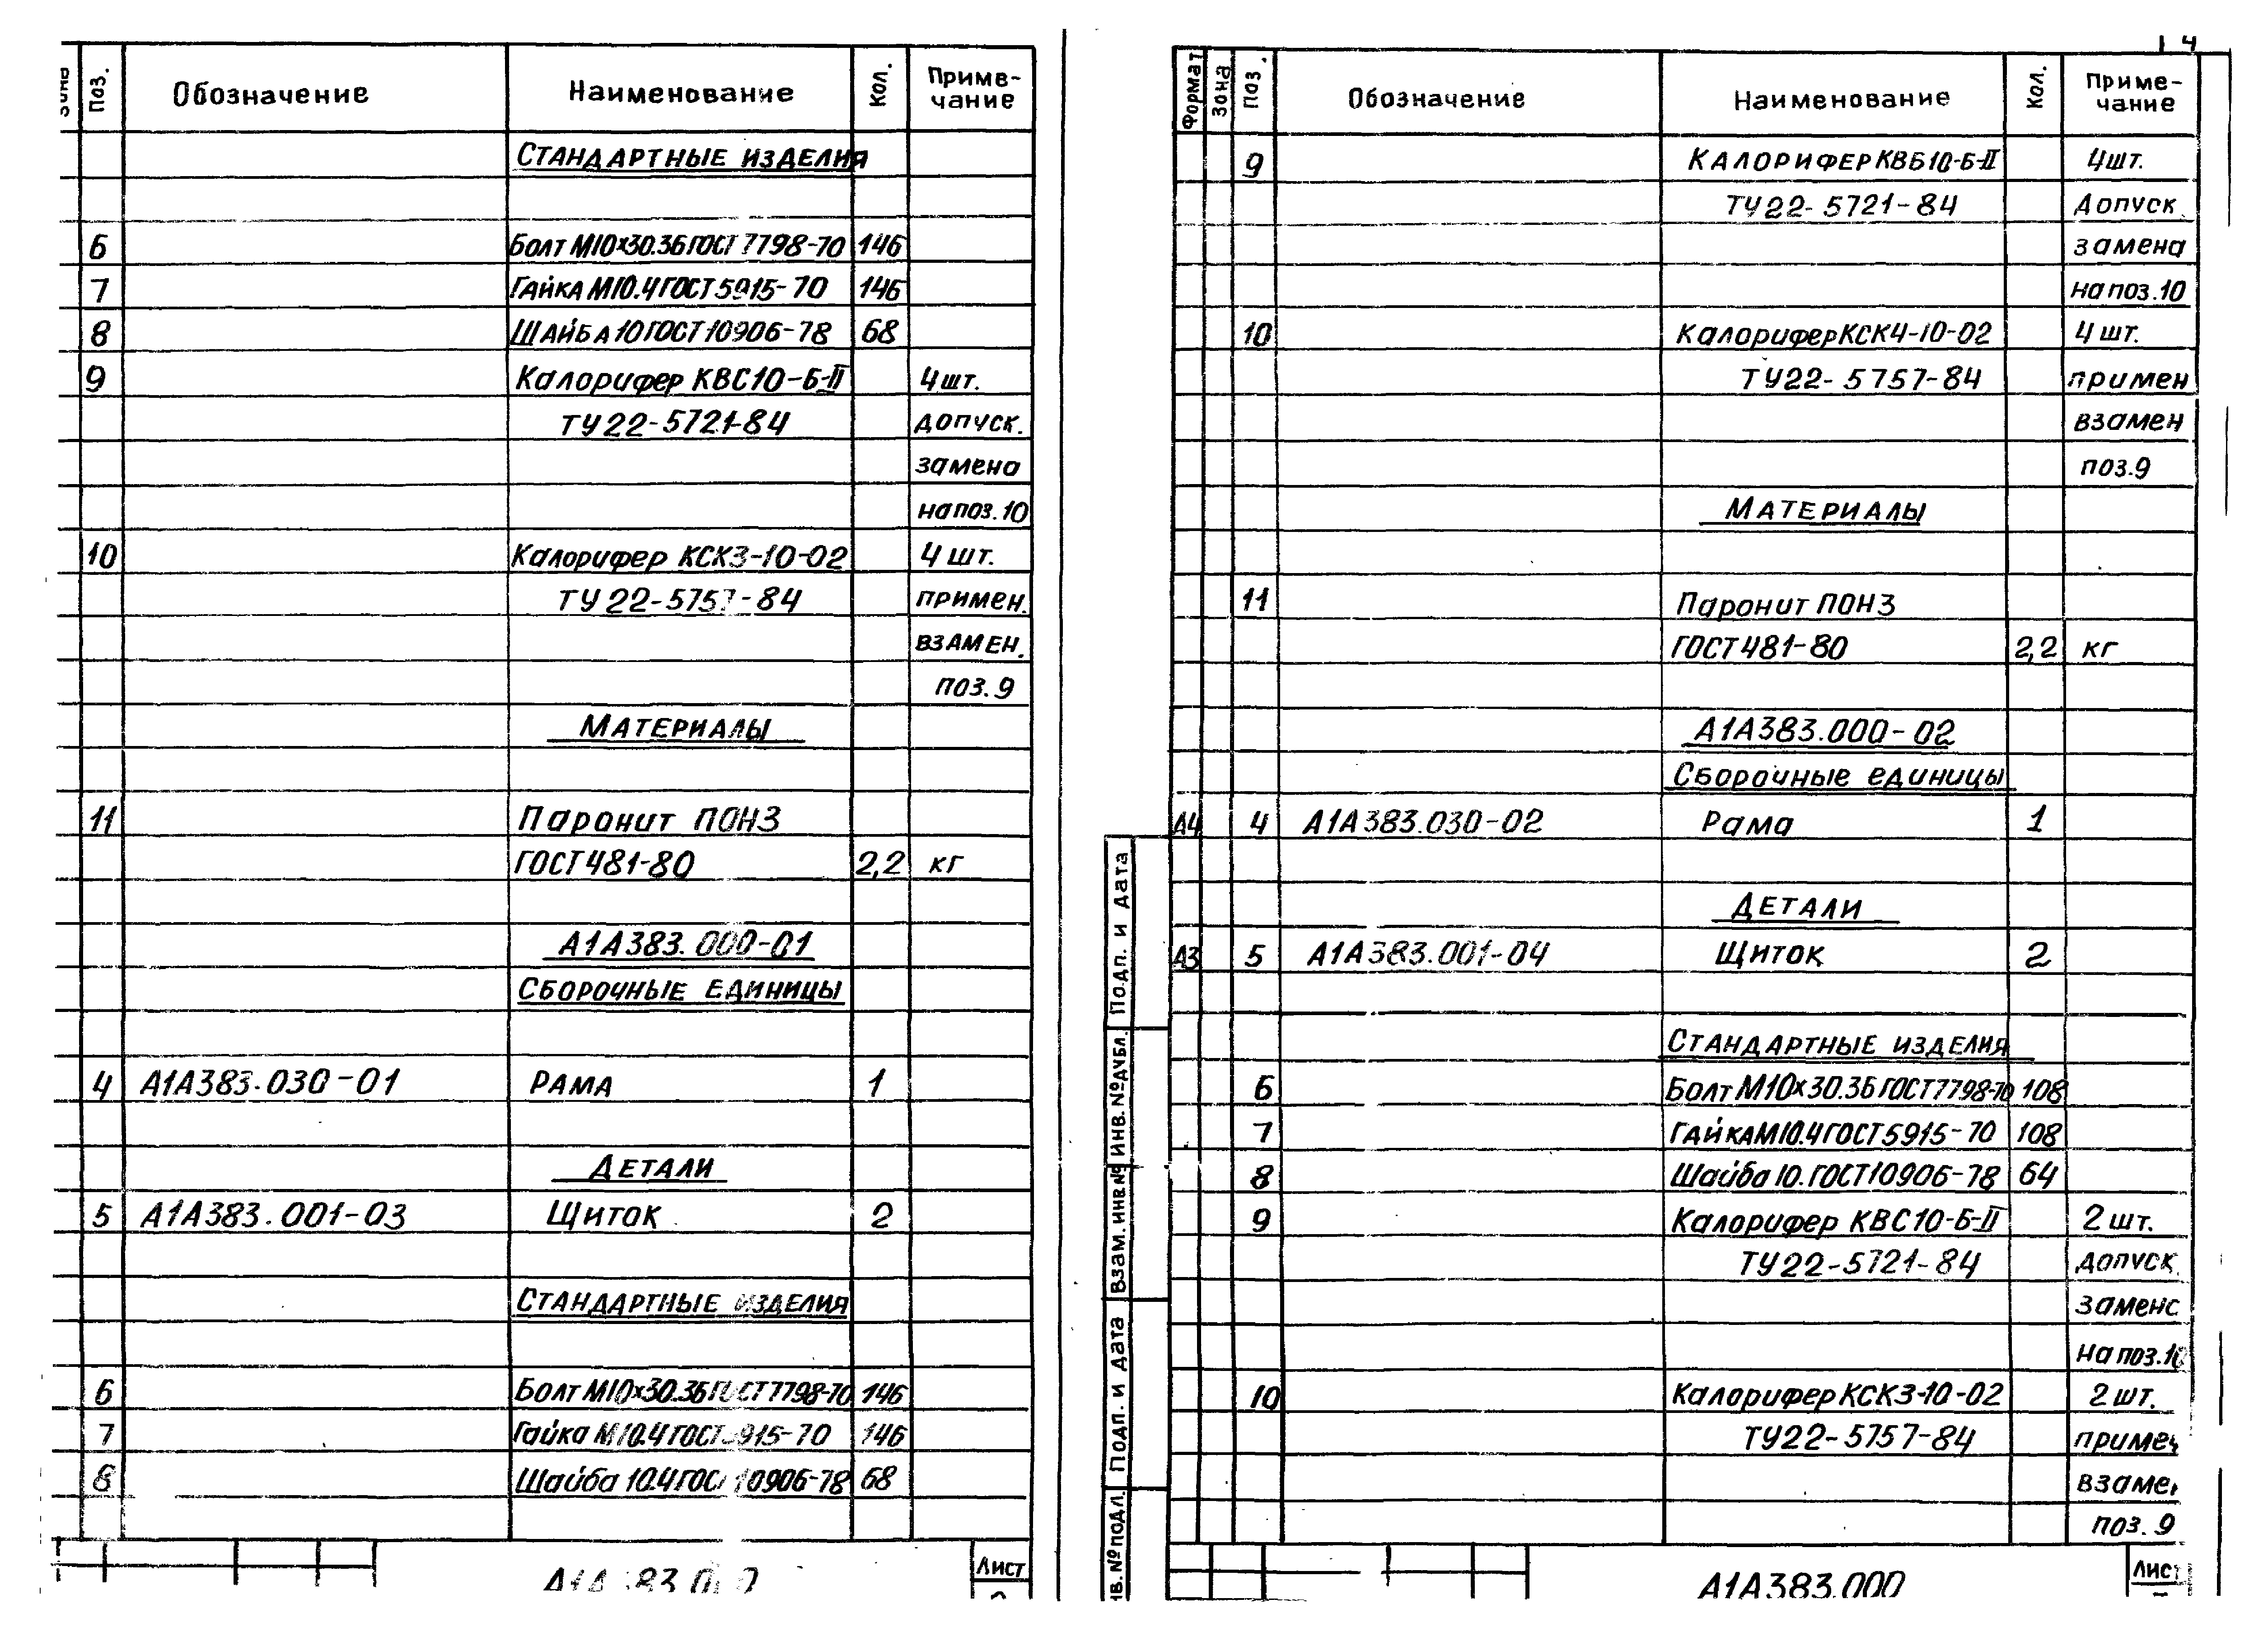 Поз. Обозначение Наименование Кол. Приме-
чание
СТАНДАРТНЫЕ ИЗДЕЛИЯ
6 БОЛТ М10х30.36 ГОСТ 7798-70 146
7 ГАЙКА М10.4 ГОСТ 5915-70 146
8 ШАЙБА 10 ГОСТ 10906-78 68
9 Калорифер КВС10-Б-II 4шт.
ТУ22-5721-84 допуск.
замена
на поз.10
10 Калорифер КСК3-10-02 4 шт.
ТУ 22-5757-84 примен.
ВЗАМЕН.
поз.9
МАТЕРИАЛЫ
11 Паронит ПОН3
ГОСТ 481-80 2,2 кг
А1А383.000-01
СБОРОЧНЫЕ ЕДИНИЦЫ
4 А1А383.030-01 РАМА 1
ДЕТАЛИ
5 А1А383.001-03 Щиток 2
СТАНДАРТНЫЕ ИЗДЕЛИЯ
6 Болт М10х30.36 ГОСТ 7798-70 146
7 Гайка М10.4 ГОСТ 5915-70 146
8 Шайба 10.4 ГОСТ 10906-78 68
Лист
4
Формат Зона Поз. Обозначение Наименование Кол. Приме-
чание
9 КАЛОРИФЕР КВБ10-Б-II 4шт.
ТУ22-5721-84 Допуск
замена
на поз.10
10 Калорифер КСК4-10-02 4 шт.
ТУ22-5757-84 примен
взамен
поз.9
МАТЕРИАЛЫ
11 Паронит ПОН3
ГОСТ 481-80 2,2 кг
А1А383.000-02
Сборочные единицы
А4 4 А1А383.030-02 Рама 1
ДЕТАЛИ
А3 5 А1А383.001-04 Щиток 2
СТАНДАРТНЫЕ ИЗДЕЛИЯ
6 Болт М10х30.36 ГОСТ 7798-70 108
7 ГАЙКА М10.4 ГОСТ 5915-70 108
8 Шайба 10. ГОСТ 10906-78 64
9 Калорифер КВС10-Б-II 2 шт.
ТУ22-5721-84 допуск
замена
на поз.10
10 Калорифер КСК3-10-02 2 шт.
ТУ22-5757-84 примен
взамен
поз. 9
А1А383.000 Лист
Подп. и дата
Инв. № дубл.
Взам. инв. №
Подп. и дата
нв. № подл.